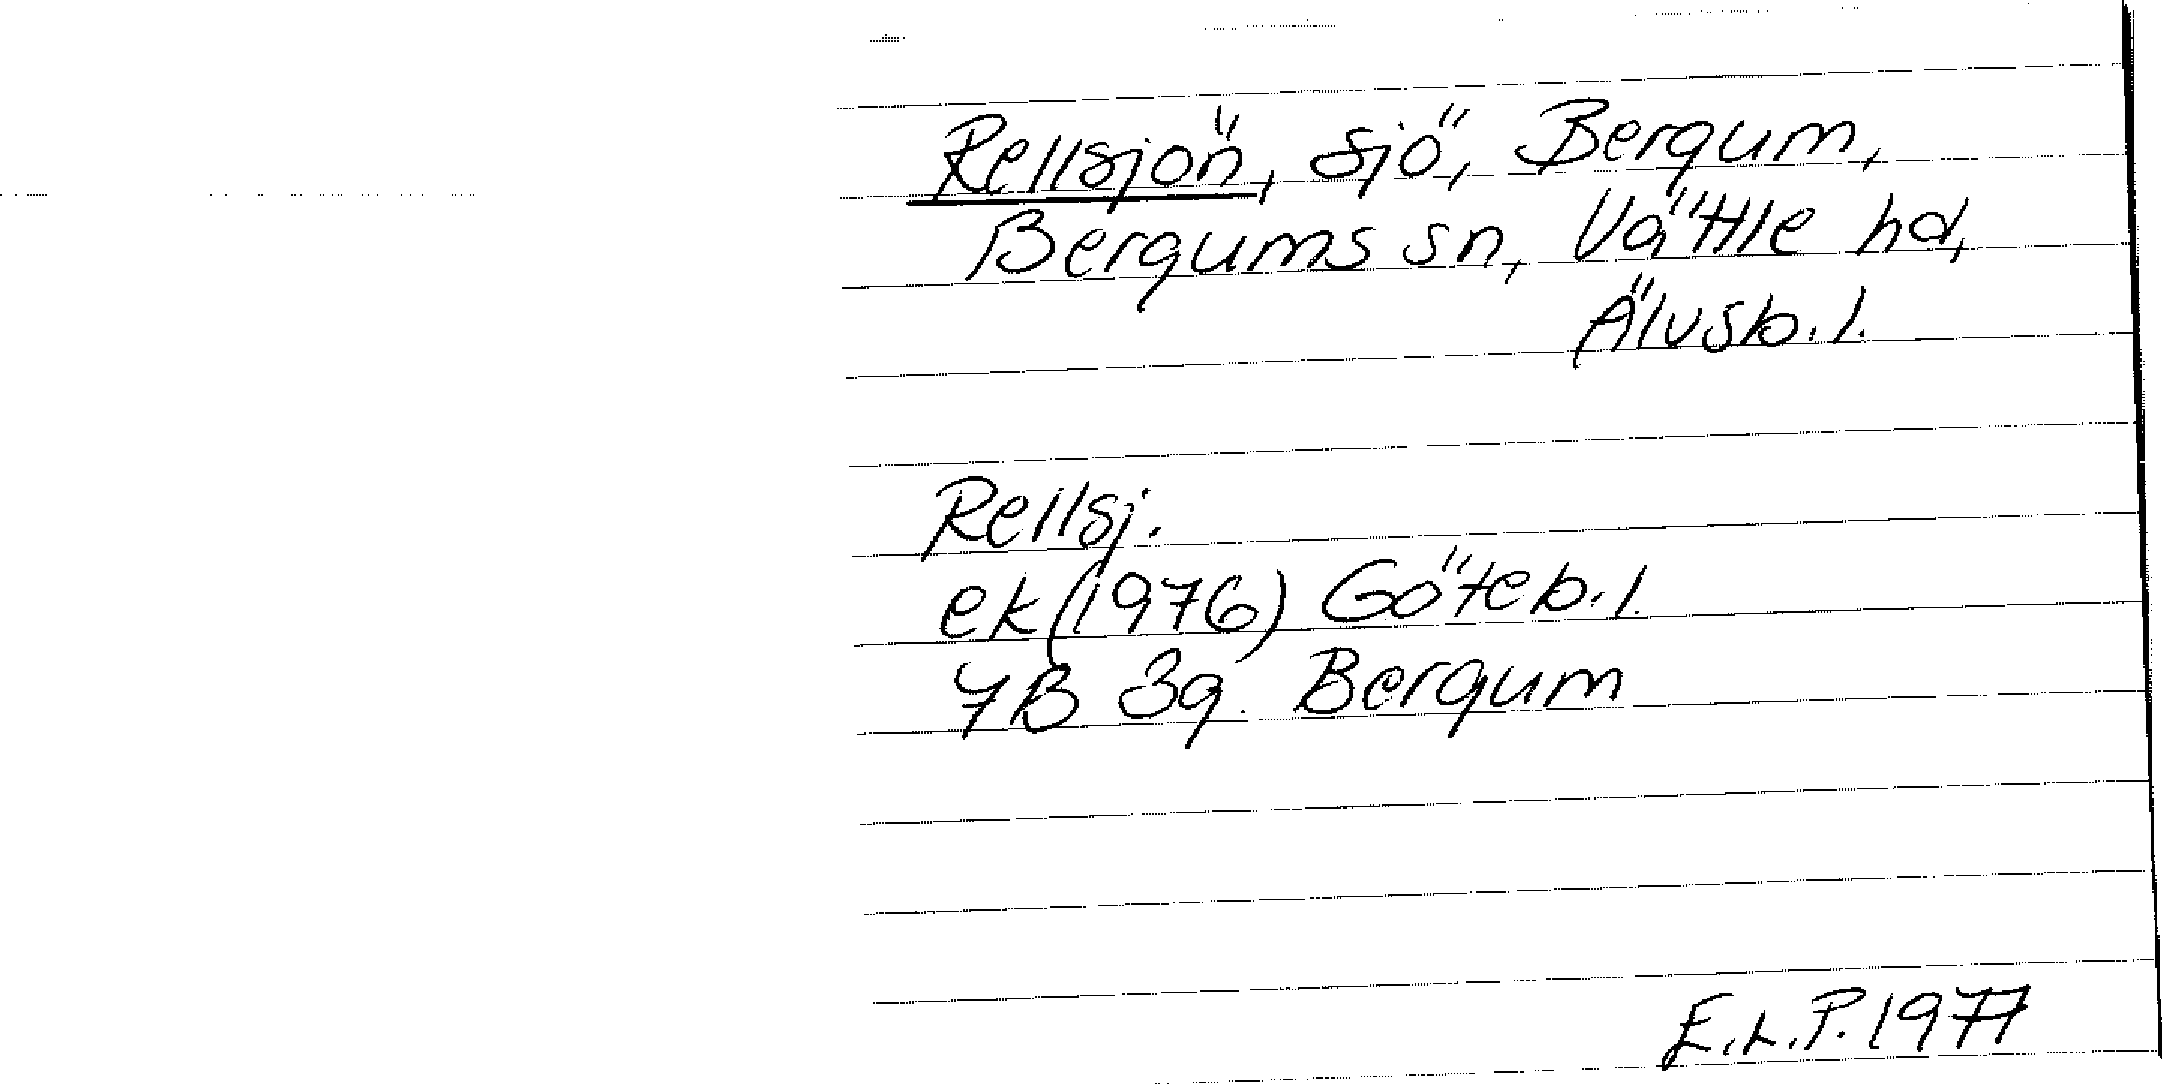 Rellsjön, sjö, Bergum,
Bergums sn, Vättle hd,
Älvsb. l.
Rellsj.
ek (1976) Göteb. l.
7B 3g Bergum
E.L.P. 1977